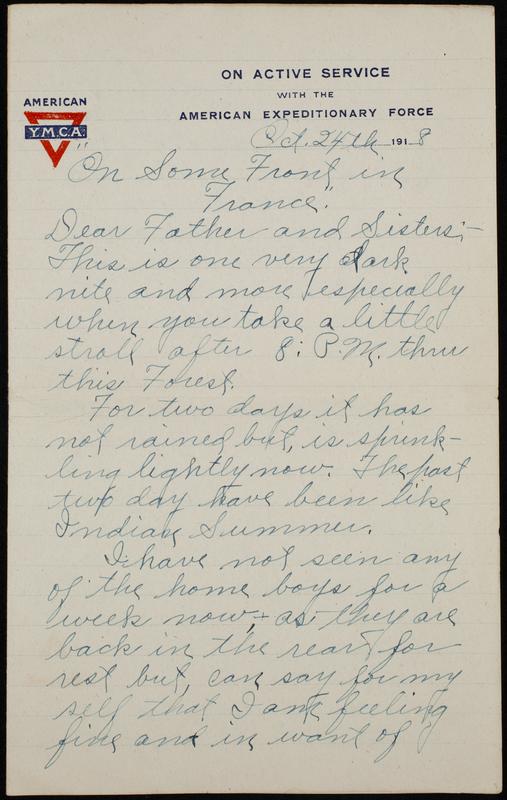 ON ACTIVE SERVICE
WITH THE
AMERICAN EXPEDITIONARY FORCE
AMERICAN
Y.M.C.A.
Oct. 24th 1918
"On Some Front in
France."
Dear Father and Sisters;-
This is one very dark
nite and more especially
when you take a little
stroll after 8: P.M. thru
this Forest.
For two days it has
not rained but, is sprink-
ling lightly now. The past
two day have been like
Indian Summer.
I have not seen any
of the home boys for a
week now, + as they are
back in the rear for
rest but, can say for my
self that I am feeling
fine and in want of